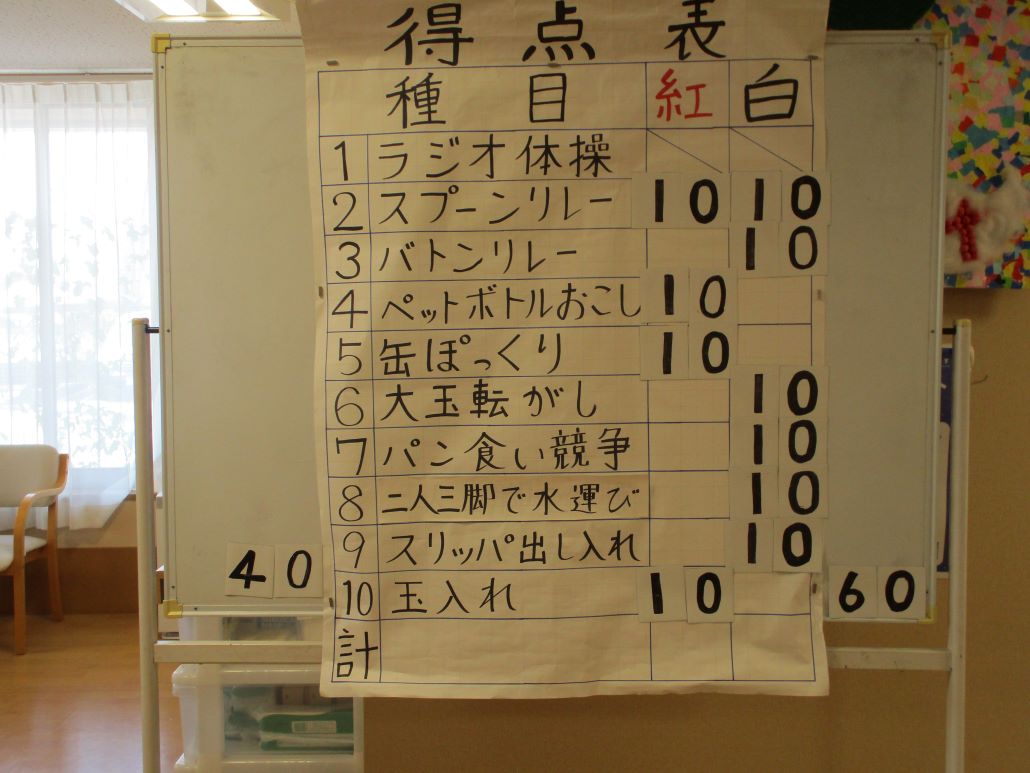 得点表
種目 紅 白
1 ラジオ体操
2 スプーンリレー 10 10
3 バトンリレー 10
4 ペットボトルおこし 10
5 缶ぽっくり 10
6 大玉転がし 10
7 パン食い競争 10
8 二人三脚で水運び 10
9 スリッパ出し入れ 10
10 玉入れ 10
計
40 60